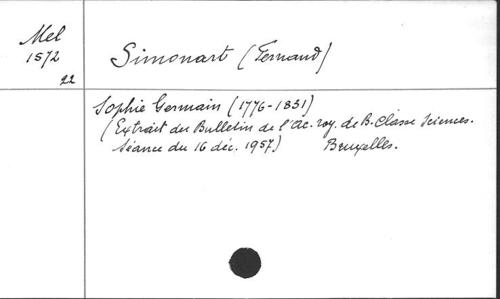 Mel
1572
22
Simonart (Fernand)
Sophie Germain (1776-1831)
(Extrait du Bulletin de l'Ac. roy. de B. Classe Sciences.
Séance du 16 déc. 1957) Bruxelles.